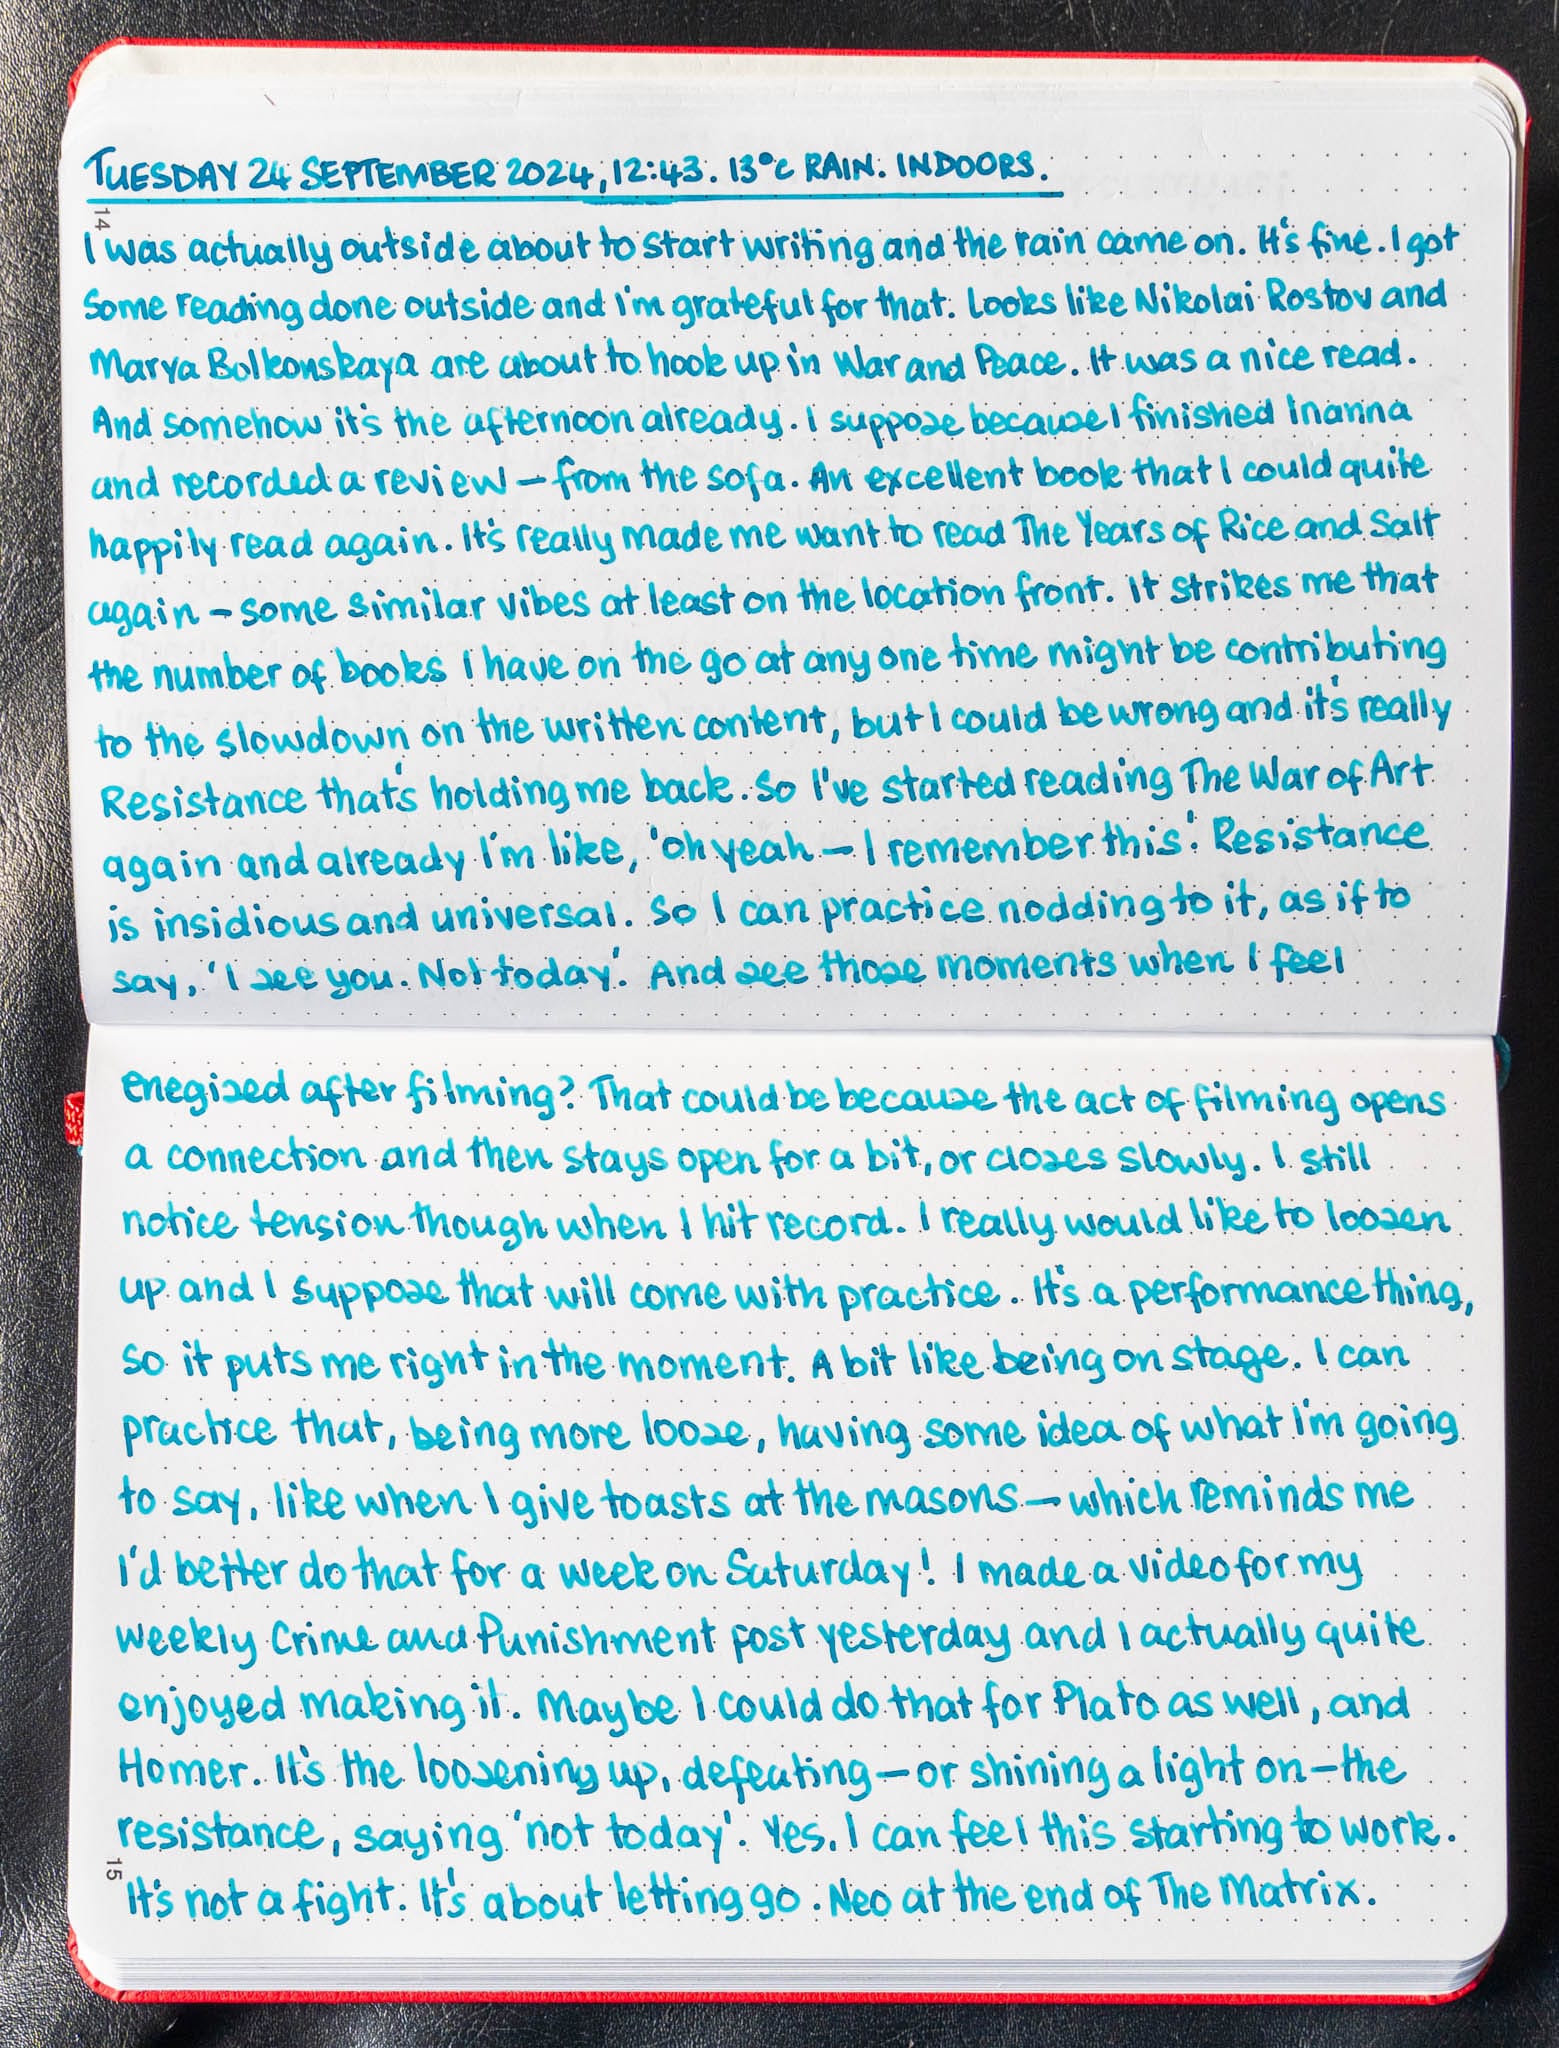 TUESDAY 24 SEPTEMBER 2024, 12:43. 13°C RAIN. INDOORS.
14
I was actually outside about to start writing and the rain came on. It's fine. I got
some reading done outside and I'm grateful for that. Looks like Nikolai Rostov and
Marya Bolkonskaya are about to hook up in War and Peace. It was a nice read.
And somehow it's the afternoon already. I suppose because I finished Inanna
and recorded a review – from the sofa. An excellent book that I could quite
happily read again. It's really made me want to read The Years of Rice and Salt
again – some similar vibes at least on the location front. It strikes me that
the number of books I have on the go at any one time might be contributing
to the slowdown on the written content, but I could be wrong and it's really
Resistance that's holding me back. So I've started reading The War of Art
again and already I'm like, 'oh yeah – I remember this'. Resistance
is insidious and universal. So I can practice nodding to it, as if to
say, 'I see you. Not today'. And see those moments when I feel
enegized after filming? That could be because the act of filming opens
a connection and then stays open for a bit, or closes slowly. I still
notice tension though when I hit record. I really would like to loosen
up and I suppose that will come with practice. It's a performance thing,
so it puts me right in the moment. A bit like being on stage. I can
practice that, being more loose, having some idea of what I'm going
to say, like when I give toasts at the masons – which reminds me
I'd better do that for a week on Saturday! I made a video for my
weekly Crime and Punishment post yesterday and I actually quite
enjoyed making it. Maybe I could do that for Plato as well, and
Homer. It's the loosening up, defeating – or shining a light on – the
resistance, saying 'not today'. Yes, I can feel this starting to work.
15
It's not a fight. It's about letting go. Neo at the end of The Matrix.